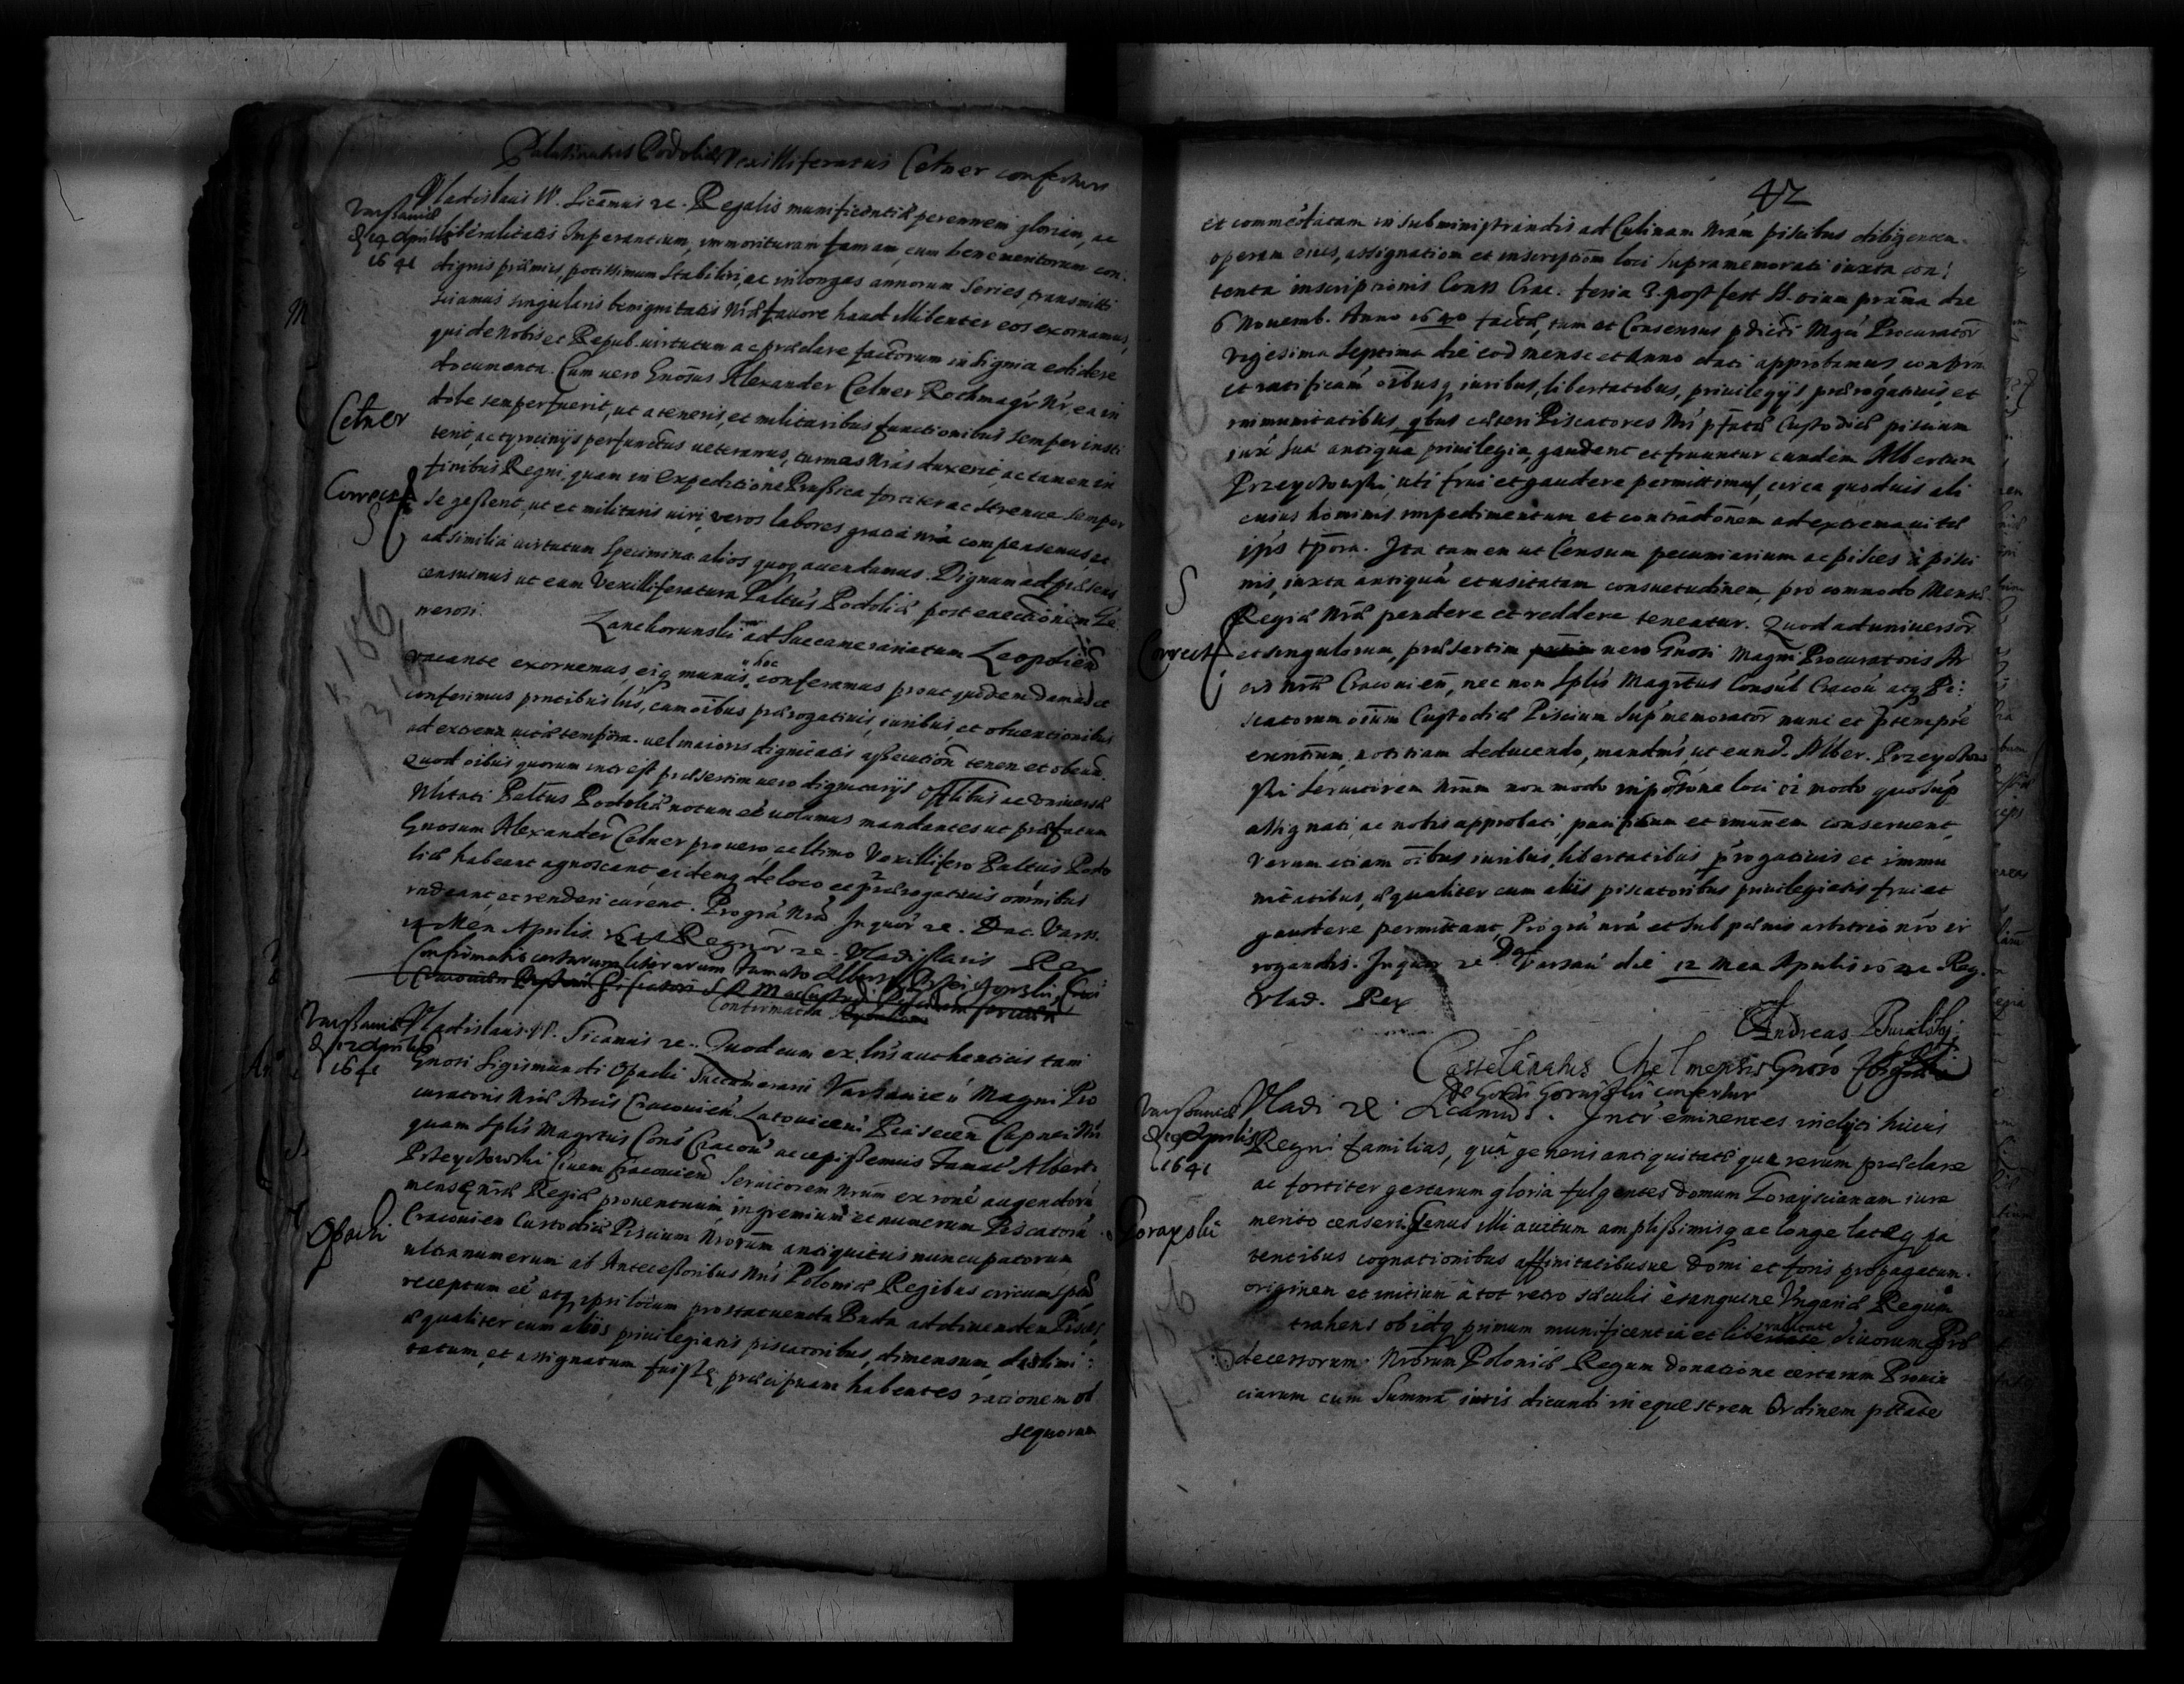 Palatinatus Podoliæ Vexilliferatus Cetner confertur
Varssauiæ
d. 14 Aprilis
1641
Vladislaus IV. Sicãmus ꝛc. Regalis munificentiæ perennem gloriam, ac
liberalitatis Imperantium, immorituram famam, cum benemeritorum con
dignis præmiis, potissimum stabiliri, ac in longas annorum series, transmitti
sciamus singularis benignitatis Nræ fauore haud illibenter eos exornamus,
qui de Nobis et Repub. uirtutum ac præclare factorum insignia edidere
documenta. Cum uero Gnosus Alexander Cetner Rothmagr Nr, ea in
Cetner
dole semper fuerit, ut a teneris, et militaribus functionibus semper insti
terit, ac tyrocinijs perfunctus ueteranus, turmas Nras duxerit, ac tamen in
finibus Regni, quam in expeditione Prussica fortiter ac strenue semper
Correct
S
se gessent, ut et militaris uiri, veros labores gratia nra compensemus, et
ad similia uirtutum specimina alios quoq auendamus. Dignum ad præsens
censuimus ut eam Vexilliferatura Paltus Podoliæ post euectionem Ge
nerosi Lanckorunski ad Succamerariatum Leopolien
vacante exornemus, eiq munus hoc conferamus prout quidem damus et
conferimus pntibus lris, cum oibus prærogatiuis, iuribus, et obuentionibus
ad extrema uitæ tempora. uel maioris dignitatis assecution tenen et obtin
Quod oibus quorum intrest præsertim uero dignitarijs Offlibus ac vniuersæ
Nlitati Paltus Podoliæ notum eē uolumus mandantes ut præfatum
Gnosum Alexander Cetner pro uero, ac ltimo Vexillifero Paltus Podo
liæ habeant agnoscant, eidemq de loco et prærogatiuis omnibus
rndeant, et renderi curent. Pro gra Nra Inquor ꝛc. Dat. Vars.
14 Men Aprilis 1641 Regnor ꝛc. Vladislaus Rex
Confirmatio certarum literarum famato Alberto Przeychowski, Ciui
Cracouien
Confirmatia
Varssauiæ
d 12 Aprilis
1641
Vladislaus IV. Sicamus ꝛc. Quod cum ex lris authenticis tam
Gnosi Sigismundi Opacki Succamerarii Varsauien Magni Pro
curatoris Nræ Arcis Cracouien Latouicen Piasecen Capnei Nri
quam Splis Magrtus Cons Cracou accepissemus famat Alberti
Przeychowski Ciuem Cracouien Seruitorem Nrum ex rone augendoru
mensæ nræ Regiæ prouentuum, in gremium et numerum Piscatoru
Opacki
Cracouien Custodiæ Piscium Nrorum antiquitus nuncupatorum
ultra numerum ab Antecessoribus Nris Poloniæ Regibus circumspt
receptum eē atq ipsi locum pro statuenda Buda ad diuenden Pisces
æqualiter cum aliis priuilegiatis piscatoribus, dimensum, destimi
tatum, et assignatum fuisse, præcipuam habentes rationem ob
sequorum
42
et commedatam in subministrandis ad Culinam Nram piscibus diligencem
operam eius, assignation et inscription loci supramemorati iuxta con
tenta inscriptionis Cons Crac. feria 3. post fest SS. oium prama die
6 Nouemb. Anno 1640 factæ, tum et Consensus pdicti Mgri Procurator
vigesima septima die eod mense et Anno dati approbamus confirm
et ratificam oibusq iuribus, libertatibus, priuilegijs prærogatiuis, et
immunitatibus qbus cæteri Piscatores Nri pfatæ Custodiæ piscium
iuxa sua antiqua priuilegia, gaudent et fruuntur eundem Albertum
Przeychowski, uti frui et gaudere permittimus, circa quoduis ali
cuius hominis impedimentum et contradonem ad extrema uitæ
ipsis tpora. Ita tamen ut Censum pecuniarium ac pisces è pisci
nis, iuxta antiqua et usitatam consuetudinem, pro commodo Mensæ
S
Regiæ Nræ pendere et reddere teneatur. Quod ad uniuersor
Correct
et singulorum, præsertim uero Gnosi Magni Procuratoris Ar
cis Nræ Cracouien, nec non Splis Magrtus Consul Cracou atq Pi
scatorum oium Custodiæ Piscium supmemorator nunc et p tempre
exntium, notitiam deducendo, mandms, ut eund. Alber. Przeychow
ski seruitorem Nrum non modo in posione loci ei modo quo sup
assignati, ac nobis approbati, et imunem conseruent,
verum etiam oibus iuribus, libertatibus, prrogatiuis et immu
nitatibus, æqualiter cum aliis piscatoribus priuilegiatis frui et
gaudere permittant, Pro gra nra et sub pænis arbitrio nro ir
rogandis. In quor ꝛc Dat Varsau die 12 Men Aprilis 1641 Reg.
Vlad. Rex
Andreas
Castelanatus Chelmensis Gnoso
de Goraj Gorayski confertur
Varssauiæ
d 19 Aprilis
1641
Vladi ꝛc Sicamus. Inter eminentes inclyti huius
Regni familias, quà generis antiquitate qua rerum præclare
ac fortiter gestarum gloria fulgentes Domum Goraysciānam iure
Gorayski
merito censeri, Genus illi auitum amplissimisq ac longe lateq pa
tentibus cognationibus affinitatibusue domi et foris propagatum.
originem et initium à tot retro sæculis è sanguine Vngariæ Regum
trahens ob idq primum munificentia et liberalitate Diuorum Præ
decessorum Nrorum Poloniæ Regum donatione certarum Prouin
ciarum cum summa iuris dicundi in equestrem Ordinem ptate